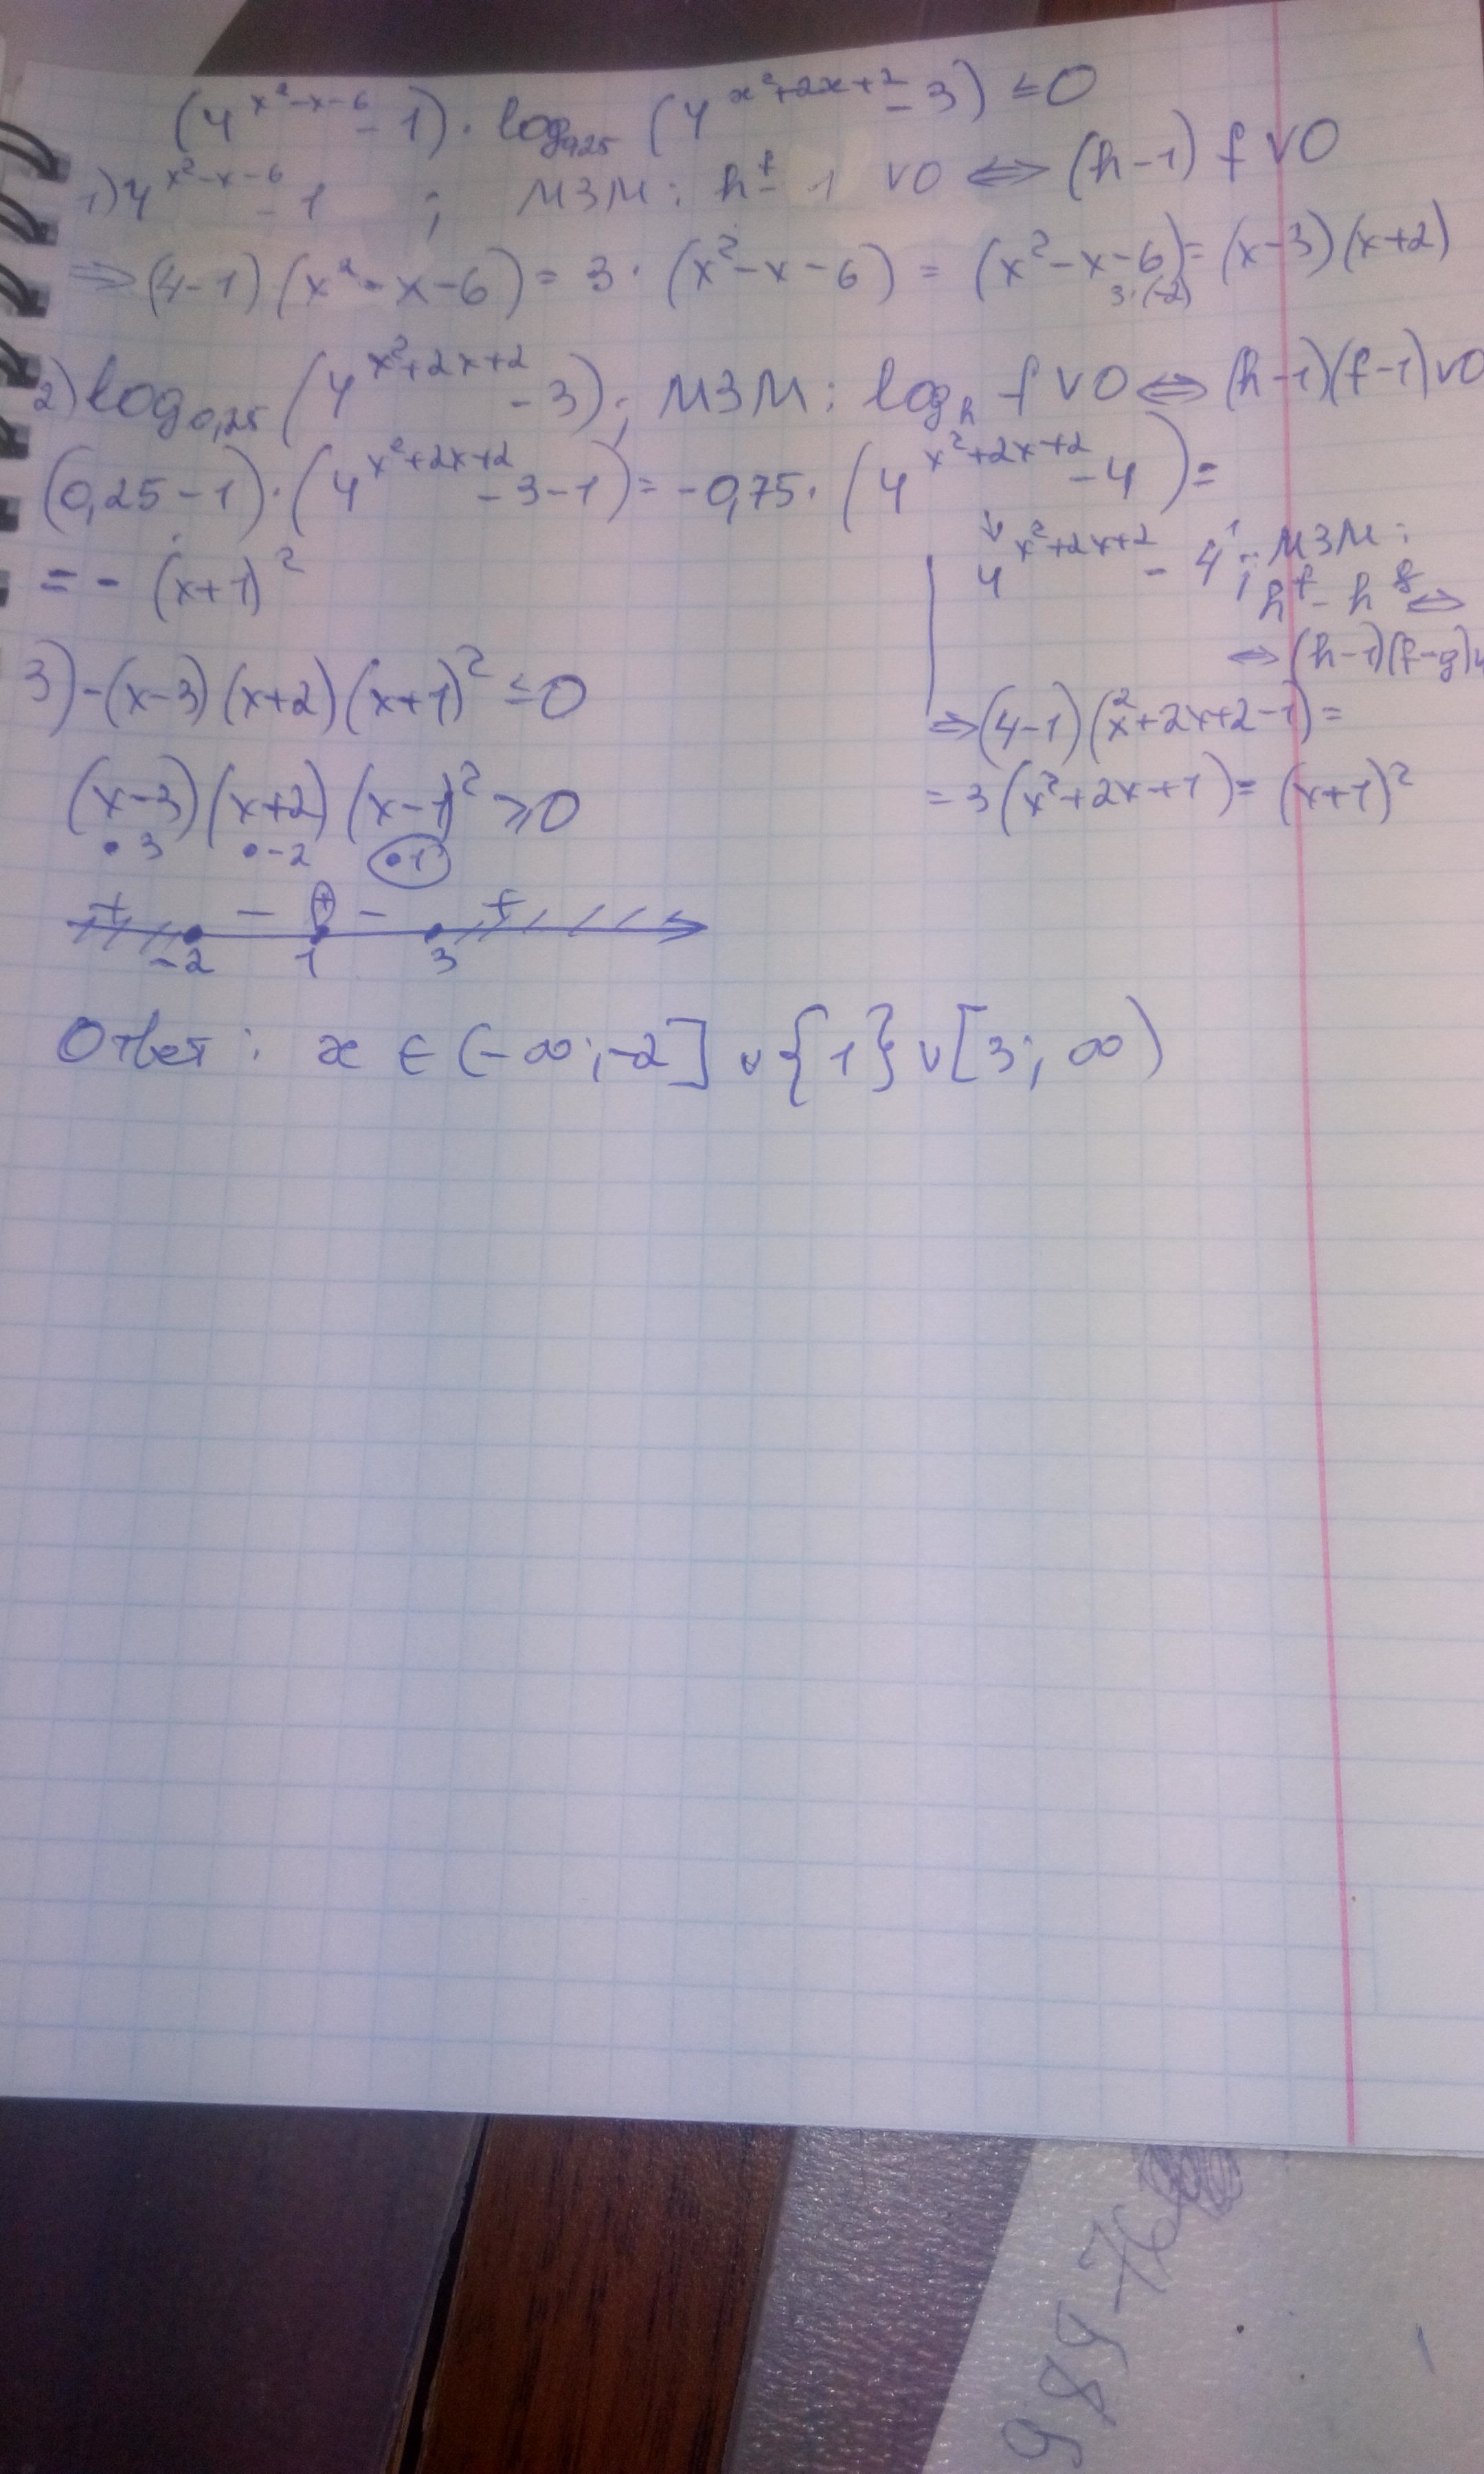 (4^{x²-x-6} - 1) · log_{0,25} (4^{x²+2x+2} - 3) ≤ 0
1) 4^{x²-x-6} - 1 ; МЗМ: h^f - 1 ∨ 0 ⇔ (h-1) f ∨ 0
⇒ (4-1) (x²-x-6) = 3 · (x²-x-6) = (x²-x-6) = (x-3)(x+2)
3·(-2)
2) log_{0,25} (4^{x²+2x+2} - 3) ; МЗМ: log_h f ∨ 0 ⇔ (h-1)(f-1) ∨ 0
(0,25-1) · (4^{x²+2x+2} - 3 - 1) = -0,75 · (4^{x²+2x+2} - 4) =
= - (x+1)²
↓ 4^{x²+2x+2} - 4¹ ; МЗМ:
h^f - h^g ⇔
⇔ (h-1)(f-g)
⇒ (4-1)(x²+2x+2-1) =
= 3(x²+2x+1) = (x+1)²
3) -(x-3)(x+2)(x+1)² ≤ 0
(x-3)(x+2)(x-1)² ≥ 0
• 3 • -2 • 1
+ - + - +
-2 1 3
Ответ: x ∈ (-∞; -2] ∪ {1} ∪ [3; ∞)
989 76